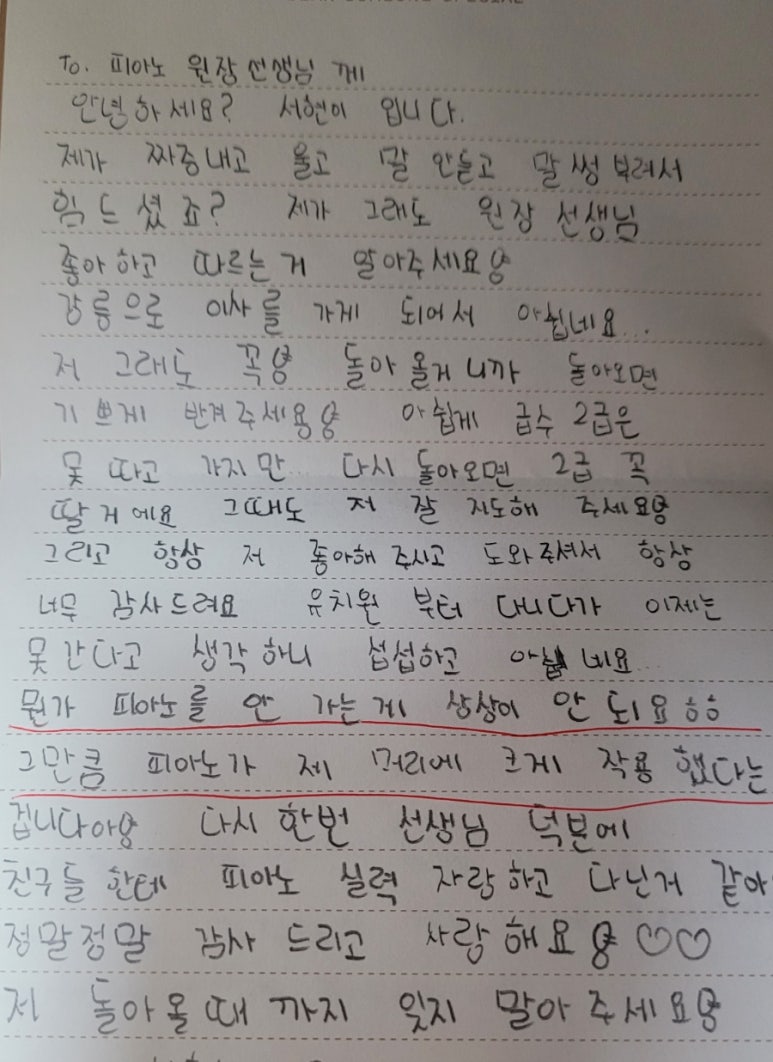 To. 피아노 원장선생님 께
안녕하세요? 서현이 입니다.
제가 짜증내고 울고 말 안듣고 말썽 부려서
힘드셨죠? 제가 그래도 원장 선생님
좋아하고 따르는거 알아주세요용
강릉으로 이사를 가게 되어서 아쉽네요...
저 그래도 꼭용 돌아올거니까 돌아오면
기쁘게 반겨주세용용 아쉽게 급수 2급은
못 따고 가지만... 다시 돌아오면 2급 꼭
딸거에요 그때도 저 잘 지도해 주세요용
그리고 항상 저 좋아해 주시고 도와주셔서 항상
너무 감사드려요 유치원 부터 다니다가 이제는
못간다고 생각하니 섭섭하고 아쉽네요...
뭔가 피아노를 안 가는게 상상이 안 되요ㅎㅎ
그만큼 피아노가 제 머리에 크게 작용했다는
겁니다아용 다시한번 선생님 덕분에
친구들한테 피아노 실력 자랑하고 다닌거 같아
정말정말 감사 드리고 사랑해요용♡♡
저 돌아올때 까지 잊지 말아주세요용